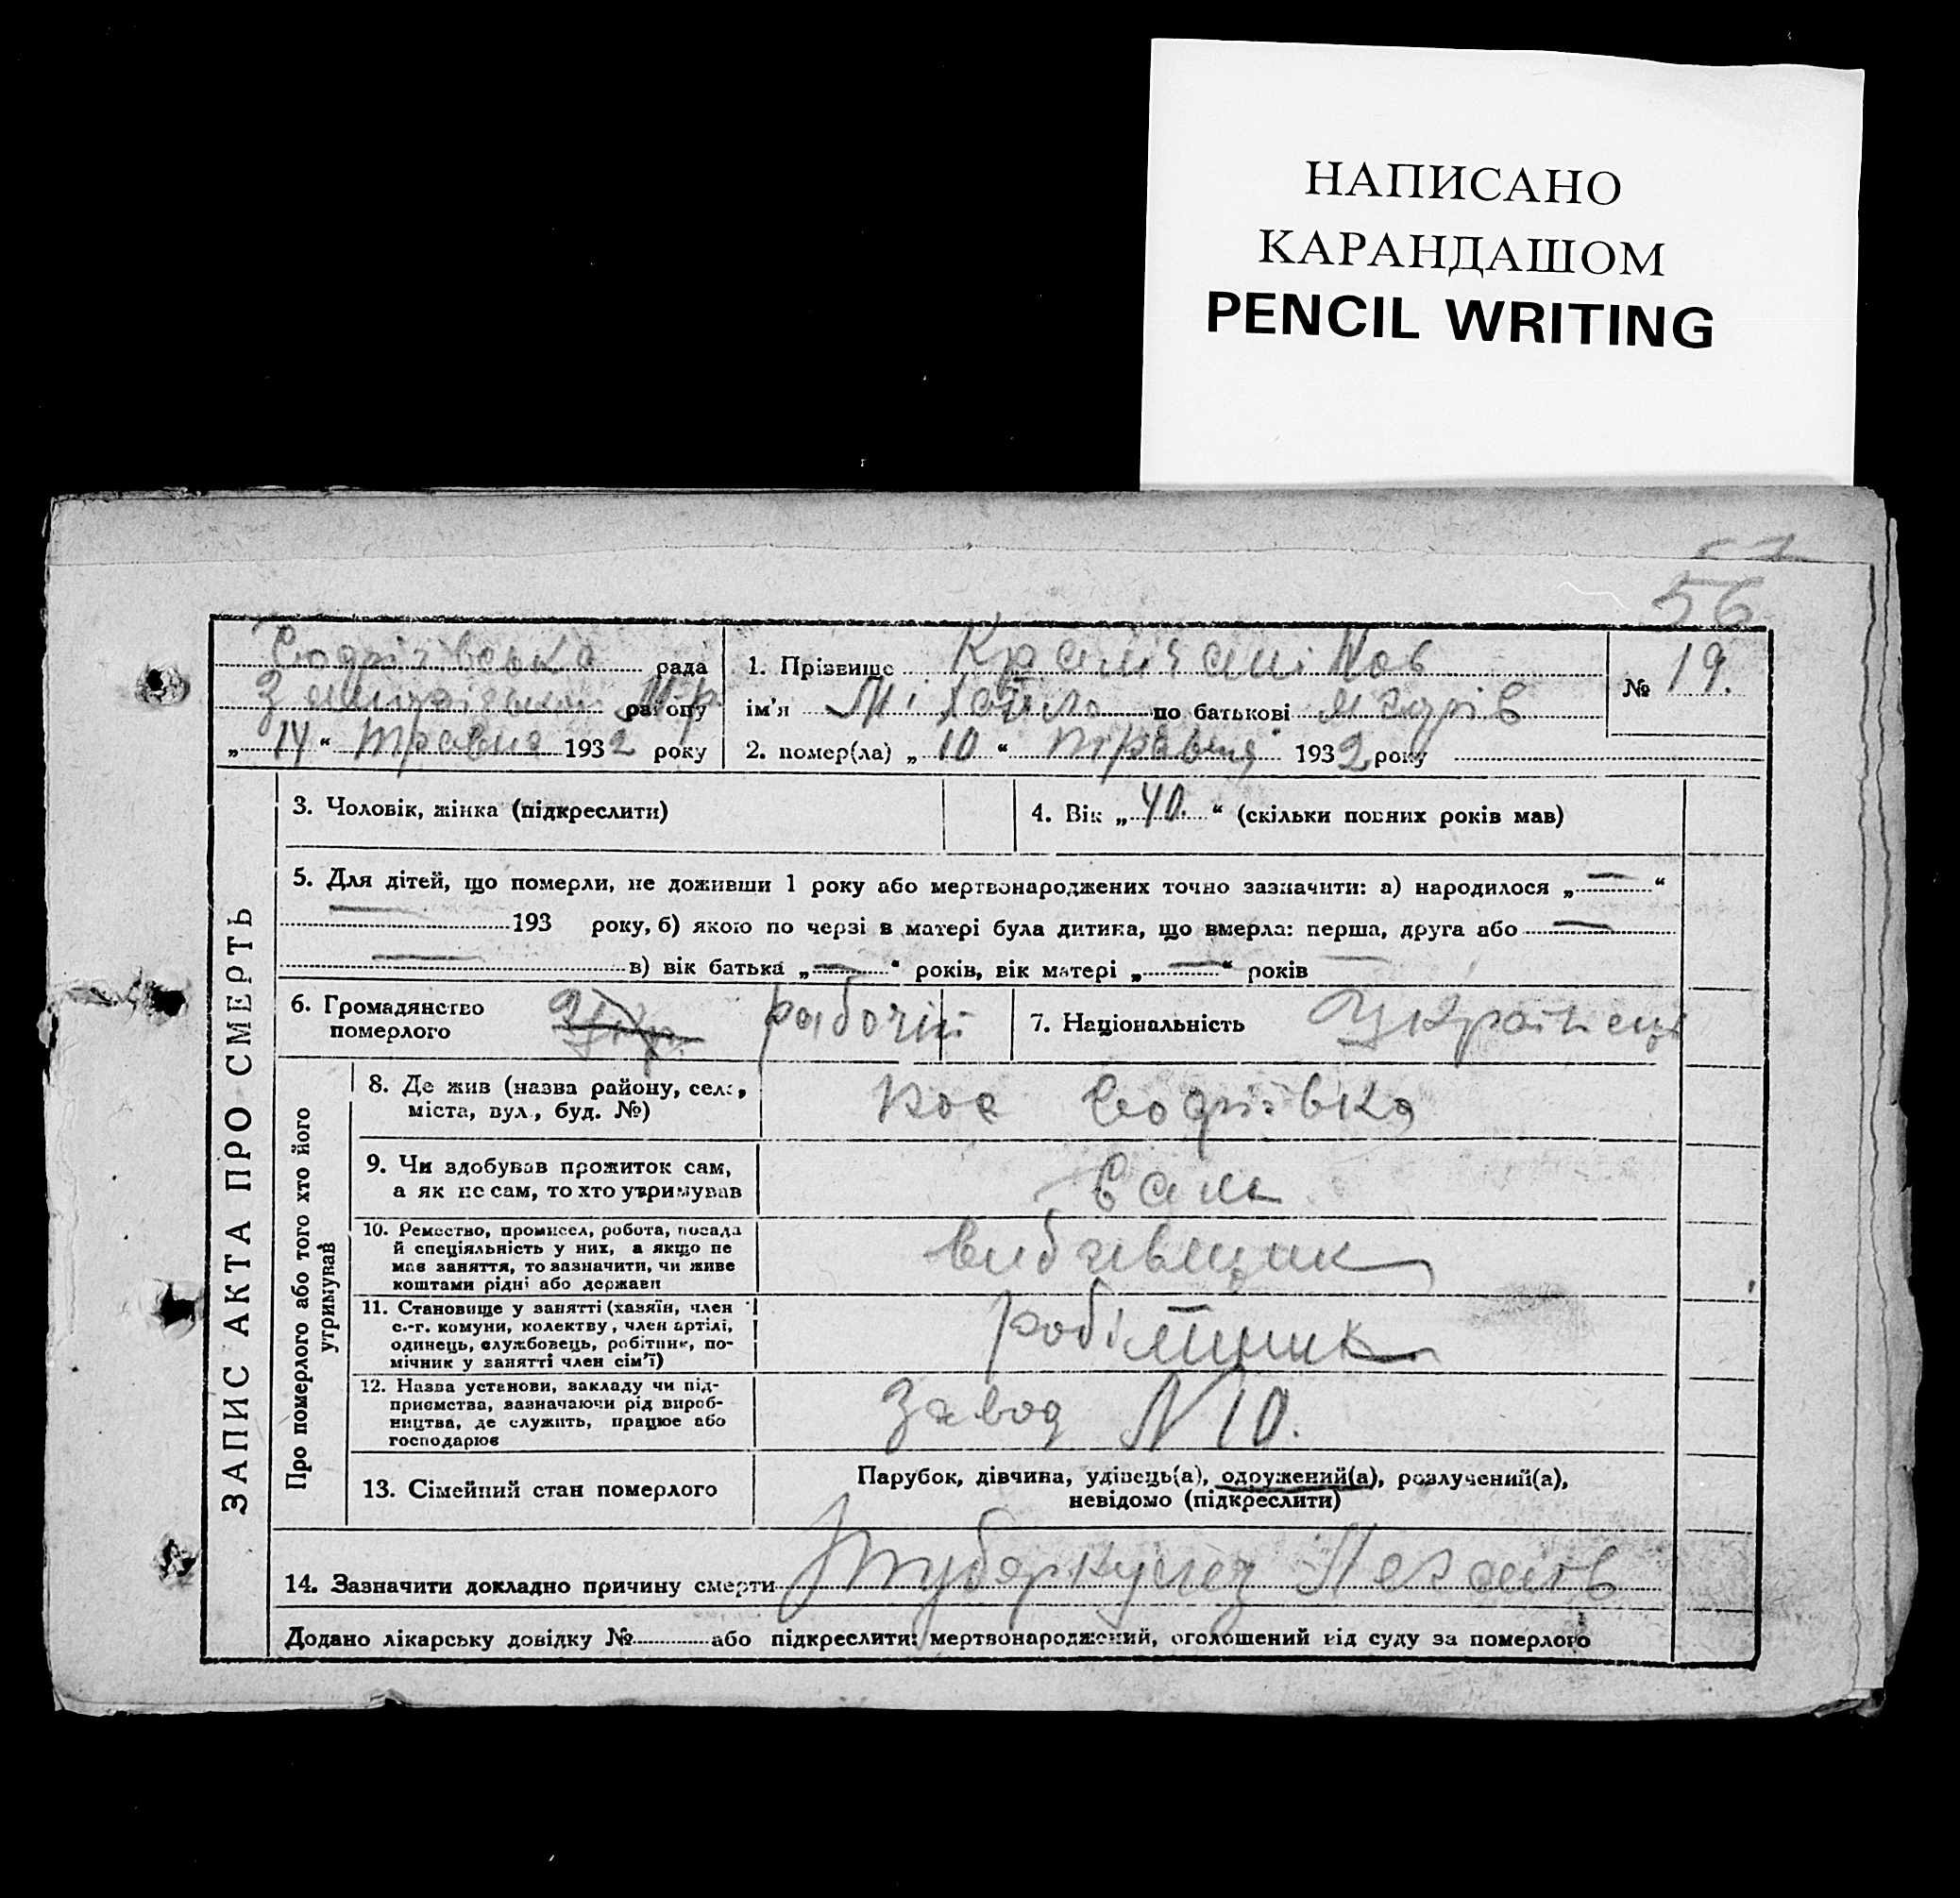 НАПИСАНО
КАРАНДАШОМ
PENCIL WRITING
56
рада
району
„ 14 “ травня 1932 року
1. Прізвище
ім'я Міхайло по батькові
2. помер(ла) „ 10 “ травня 1932 року
№ 19.
ЗАПИС АКТА ПРО СМЕРТЬ
3. Чоловік, жінка (підкреслити)
4. Вік „ 40. “ (скільки повних років мав)
5. Для дітей, що померли, не доживши 1 року або мертвонароджених точно зазначити: а) народилося „ — “
— 193 року, б) якою по черзі в матері була дитина, що вмерла: перша, друга або —
— в) вік батька „ — “ років, вік матері „ — “ років
6. Громадянство
померлого
рабочій
7. Національність Українець
Про померлого або того хто його
утримував
8. Де жив (назва району, села,
міста, вул., буд. №)
9. Чи здобував прожиток сам,
а як не сам, то хто утримував
сам
10. Ремество, промисел, робота, посада
й спеціяльність у них, а якщо не
мав заняття, то зазначити, чи живе
коштами рідні або держави
вибивщик
11. Становище у занятті (хазяїн, член
с.-г. комуни, колектву, член артілі,
одинець, службовець, робітник, по-
мічник у занятті член сім'ї)
робітник
12. Назва установи, закладу чи під-
приємства, зазначаючи рід вироб-
ництва, де служить, працює або
господарює
Завод N 10.
13. Сімейний стан померлого
Парубок, дівчина, удівець(а), одружений(а), розлучений(а),
невідомо (підкреслити)
14. Зазначити докладно причину смерти Туберкульоз
Додано лікарську довідку № або підкреслити: мертвонароджений, оголошений від суду за померлого